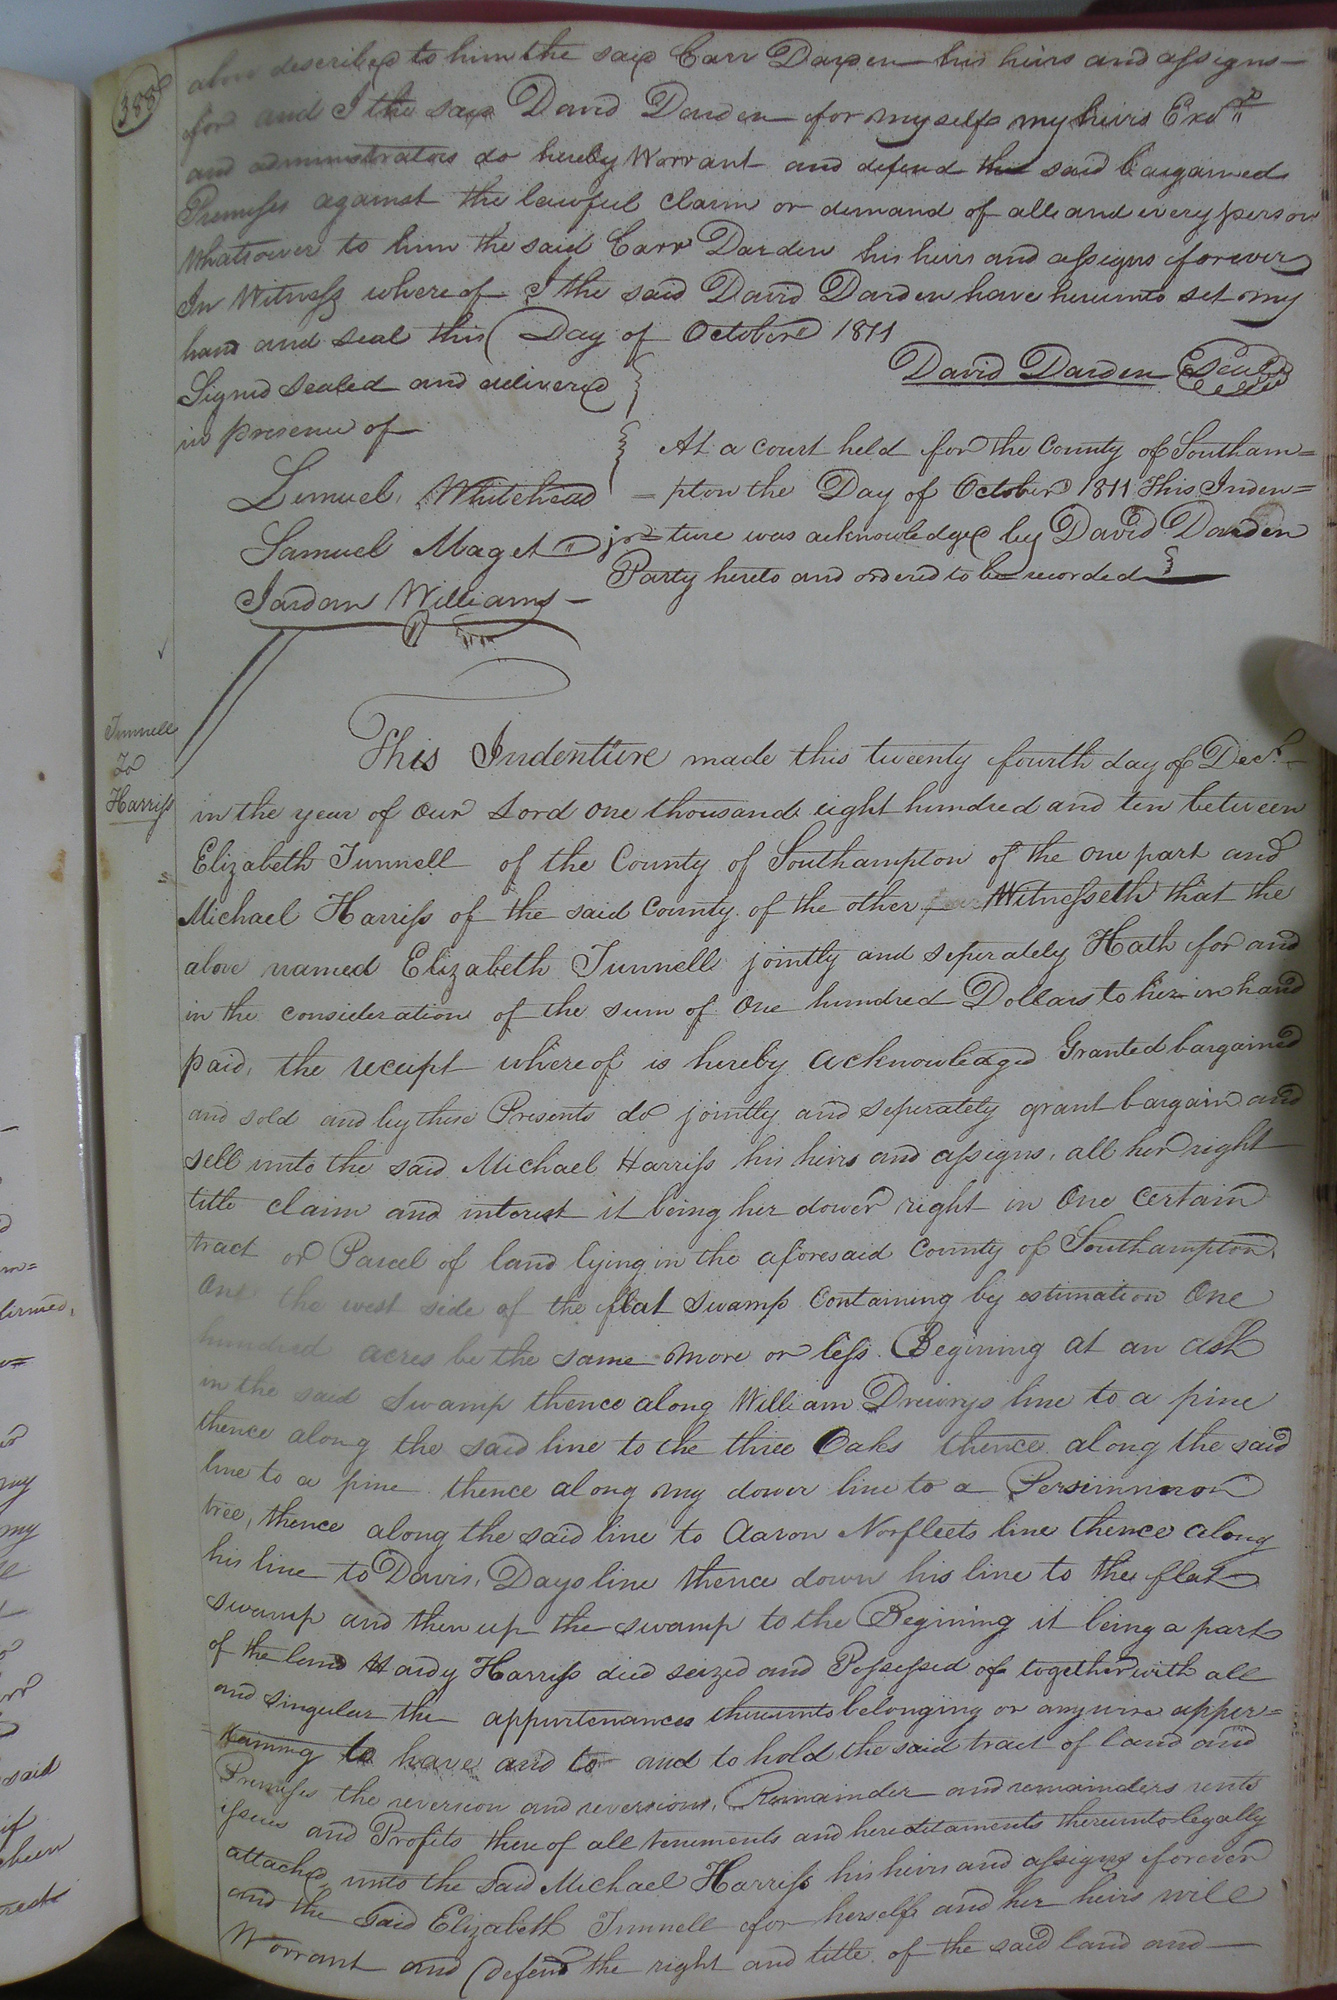 388
above described to him the said Carr Darden his heirs and assigns
for and I the said David Darden for myself my heirs Exrs
and administrators do hereby Warrant and defend the said bargained
Premises against the lawful claim or demand of all and every person
Whatsoever to him the said Carr Darden his heirs and assigns forever
In Witness whereof I the said David Darden have hereunto set my
hand and seal this Day of October 1811
David Darden Seal
Signd sealed and delivered
in presence of
Lemuel Whitehead
Samuel Maget
Jardan Williams
At a court held for the County of Southam=
=pton the Day of October 1811 This Inden=
=ture was acknowledged by David Darden
Party hereto and ordered to be recorded
Tunnell
To
Harriss
This Indenture made this twenty fourth day of Decr.
in the year of our Lord one thousand eight hundred and ten between
Elizabeth Tunnell of the County of Southampton of the one part and
Michael Harriss of the said County of the other Witnesseth that the
above named Elizabeth Tunnell jointly and seperately Hath for and
in the consideration of the sum of one hundred Dollars to her in hand
paid, the receipt whereof is hereby acknowledged Granted bargained
and sold and by these Presents do jointly and seperately grant bargain and
sell unto the said Michael Harriss his heirs and assigns, all her right
title claim and interest it being her dower right in One certain
tract or Parcel of land lying in the aforesaid County of Southampton,
One the west side of the flat swamp containing by estimation One
hundred acres be the same more or less Begining at an ash
in the said Swamp thence along William Drewrys line to a pine
thence along the said line to the three Oaks thence along the said
line to a pine thence along my dower line to a Persimmon
tree, thence along the said line to Aaron Norfleets line thence along
his line to Davis Days line thence down his line to the flat
swamp and then up the swamp to the Begining it being a part
of the land Hardy Harriss died seized and Possessed of together with all
and singular the appurtenances thereunto belonging or anywise apper=
taining to have and to and to hold the said tract of land and
Premises the reversion and reversions, Remainder and remainders rents
issues and Profits there of all tenements and hereditaments thereunto legally
attached, unto the said Michael Harriss his heirs and assigns forever
and the said Elizabeth Tunnell for herself and her heirs will
Warrant and defend the right and title of the said land and